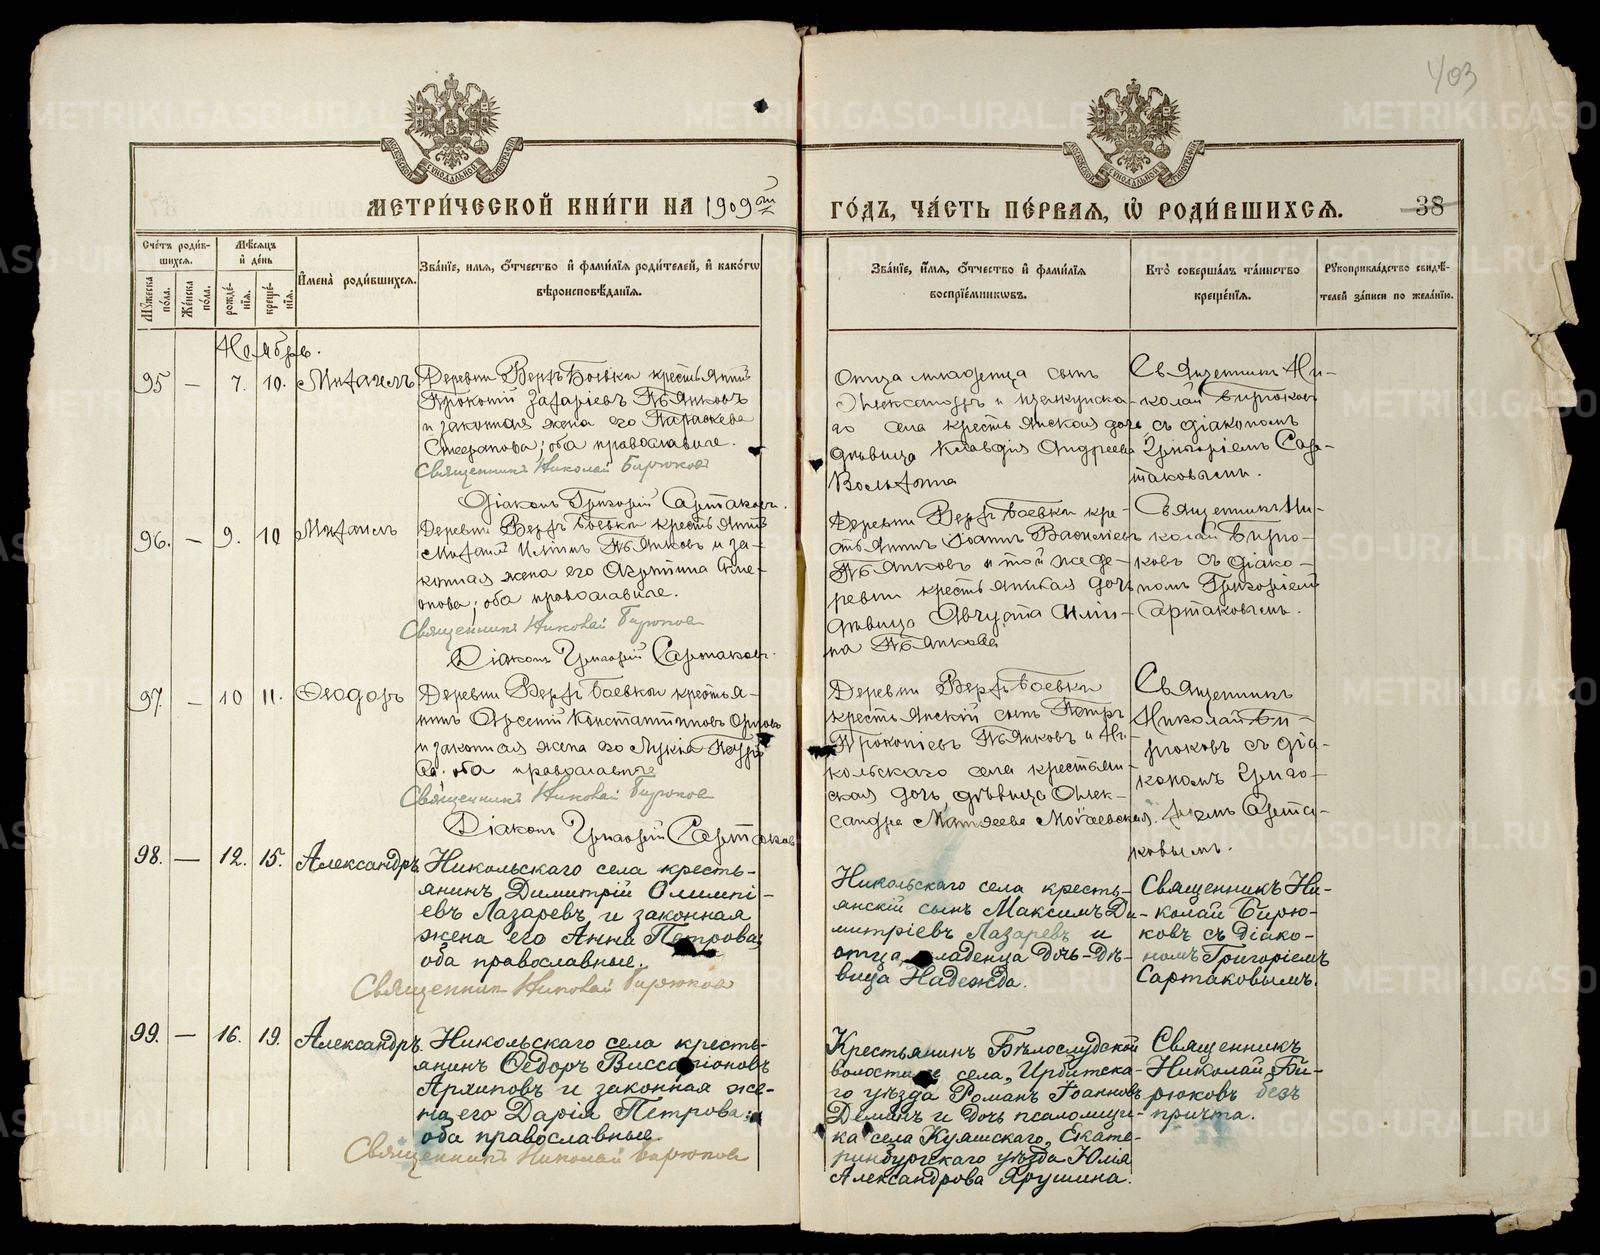 403
МЕТРИ́ЧЕСКОЙ КНИ́ГИ НА 1909й
ГО́ДЪ, ЧА́СТЬ ПЕ́РВАЯ, Ѡ РОДИ́ВШИХСЯ.
38
Сче́тъ роди́в-
шихся.
Мꙋ́жеска по́ла.
Же́нска по́ла.
Мѣ́сяцъ
и҆ де́нь
рожде́-
нія.
креще́-
нія.
И҆мена̀ роди́вшихся.
Зва́нїе, и҆мя, о҆́тчество и҆ фами́лїя роди́телей, и҆ како́гѡ
вѣроисповѣ́данїя.
Зва́нїе, и҆́мя, о҆́тчество и҆ фами́лїя
воспрїе́мникѡвъ.
Кто̀ соверша́лъ та́инство
креще́нїя.
Рꙋкоприкла́дство свидѣ́-
телей за́писи по жела́нїю.
Ноябрь.
95 — 7. 10. Михаилъ
Деревни Верхъ Боевки крестьянинъ
Прокопій Захаріевъ Пьянковъ
и законная жена его Параскева
оба православные.
Священникъ Николай Бирюковъ
Діаконъ Григорій Сартаковъ.
Отца младенца сынъ
Александръ и
го села крестьянская дочь
дѣвица Клавдія Андреева
Священникъ Ни-
колай Бирюковъ
съ діакономъ
Григоріемъ Сар-
таковымъ.
96. — 9. 10 Михаилъ
Деревни Верхъ Боевки крестьянинъ
Михаилъ Ильинъ Пьянковъ и за-
конная жена его
оба православные.
Священникъ Николай Бирюков
Діаконъ Григорій Сартаковъ.
Деревни Верхъ Боевки кре-
стьянинъ Іоаннъ Василіевъ
Пьянковъ и той же де-
ревни крестьянская дочь
дѣвица Августа Ильи-
на Пьянкова
Священникъ Ни-
колай Бирю-
ковъ съ діако-
номъ Григоріемъ
Сартаковымъ.
97. — 10 11. Ѳеодоръ
Деревни Верхъ Боевки крестья-
нинъ Арсеній Константиновъ
и законная жена его Лукія Петро
ва. оба православные
Священникъ Николай Бирюков
Діаконъ Григорій Сартаков
Деревни Верхъ Боевки
крестьянскій сынъ Петръ
Прокопіевъ Пьянковъ и Ни-
кольскаго села крестьян-
ская дочь дѣвица Алек-
сандра Матѳеева Могаевская.
Священникъ
Николай Би-
рюковъ съ діа-
кономъ Григо-
ріемъ Сарта-
ковымъ.
98. — 12. 15. Александръ
Никольскаго села кресть-
янинъ Димитрій Олимпі-
евъ Лазаревъ и законная
жена его Анна Петрова;
оба православные.
Священник Николай Бирюков
Никольскаго села кресть-
янскій сынъ Максимъ Ди-
митріевъ Лазаревъ и
отца младенца дочь-дѣ-
вица Надежда.
Священникъ Ни-
колай Бирю-
ковъ съ діако-
номъ Григоріемъ
Сартаковымъ.
99. — 16. 19. Александръ
Никольскаго села кресть-
янинъ Ѳедоръ Виссаріоновъ
Архиповъ и законная же-
на его Дарія Петрова;
оба православные.
Священникъ Николай Бирюков
Крестьянинъ Бѣлослудской
волости и села, Ирбитска-
го уѣзда Романъ Іоанновъ
Деминъ и дочь псаломщи-
ка села Куяшскаго, Екате-
ринбургскаго уѣзда Юлія
Александрова Ярушина.
Священникъ
Николай Би-
рюковъ безъ
причта.
METRIKI.GASO-URAL.RU